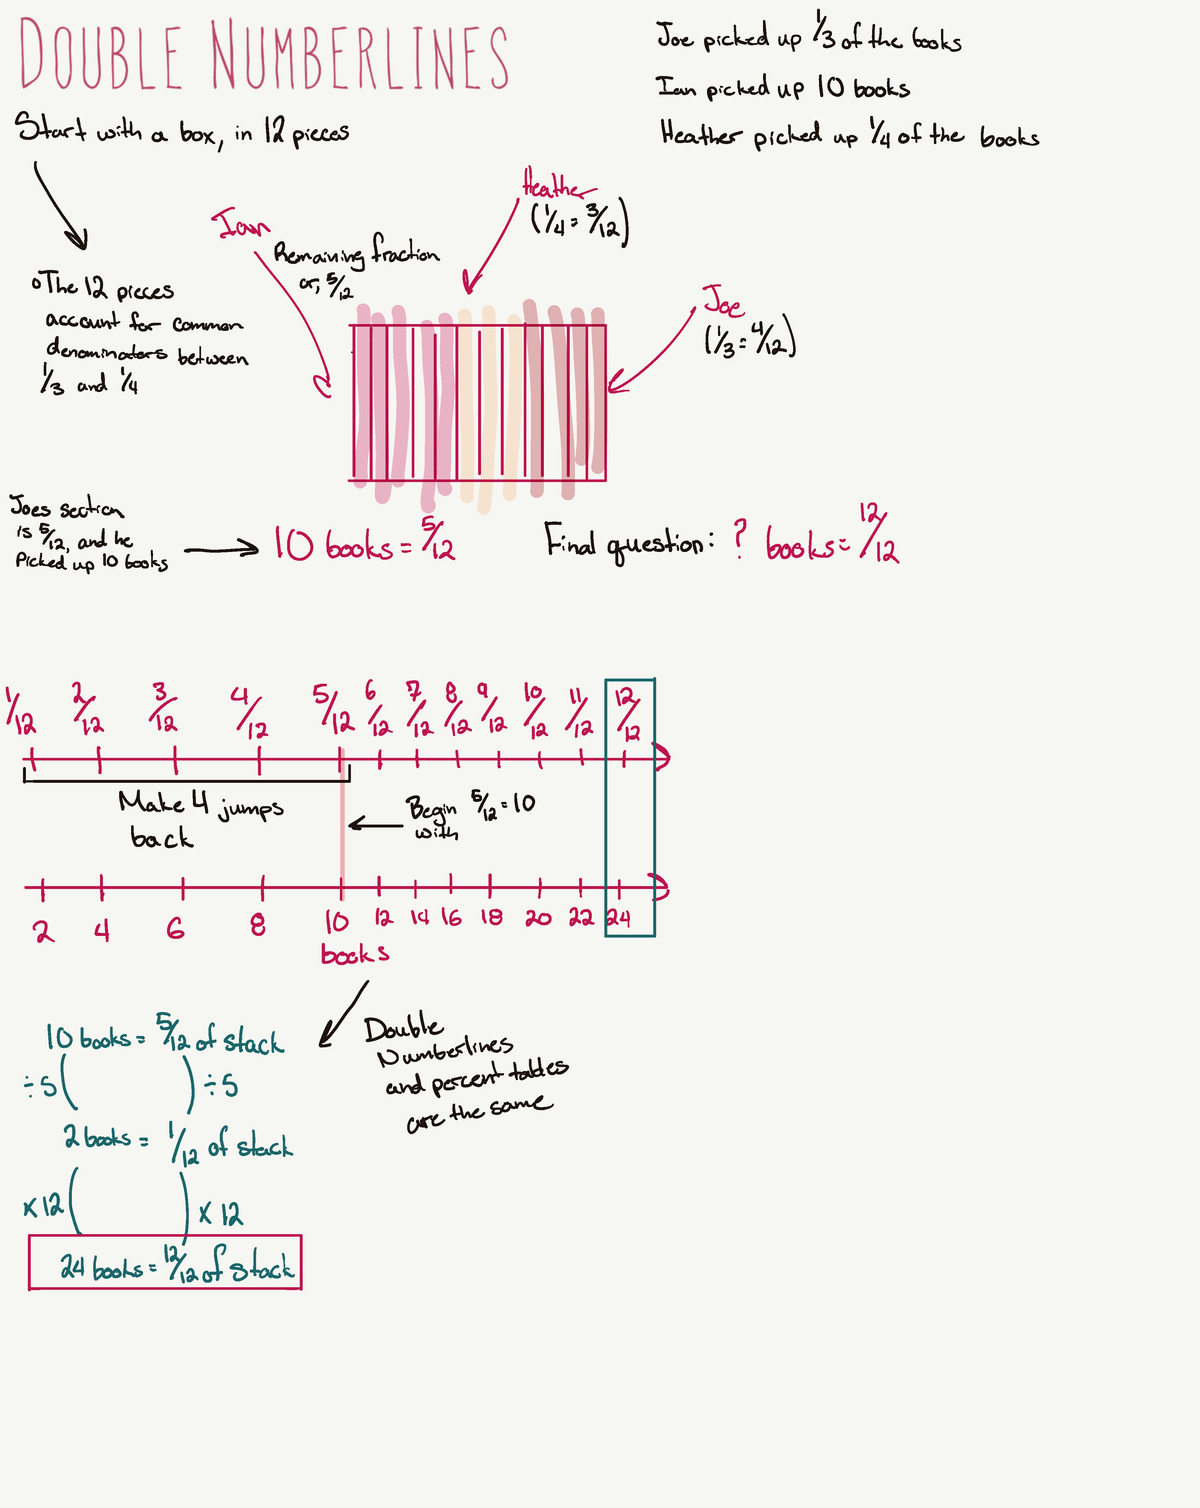 DOUBLE NUMBERLINES
Start with a box, in 12 pieces
Joe picked up 1/3 of the books
Ian picked up 10 books
Heather picked up 1/4 of the books
Heather
(1/4 = 3/12)
Ian
Remaining fraction
or, 5/12
Joe
(1/3 = 4/12)
∘The 12 pieces
account for common
denominators between
1/3 and 1/4
Joes section
is 5/12, and he
Picked up 10 books
10 books = 5/12
Final question: ? books = 12/12
1/12 2/12 3/12 4/12 5/12 6/12 7/12 8/12 9/12 10/12 11/12 12/12
Make 4 jumps
back
Begin 5/12 = 10
with
2 4 6 8 10 12 14 16 18 20 22 24
books
10 books = 5/12 of stack
÷5 ÷5
2 books = 1/12 of stack
x 12 x 12
24 books = 12/12 of stack
Double
Numberlines
and percent tables
are the same